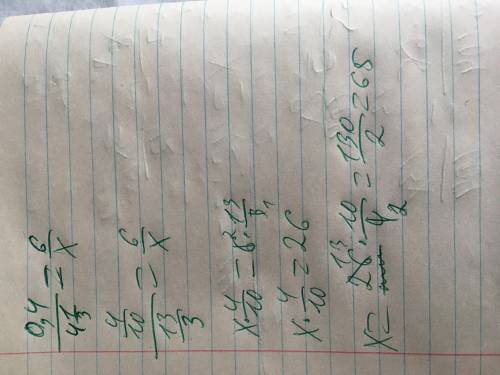 0,4/4 1/3 = 6/x
4/10 / 13/3 = 6/x
x · 4/10 = 6 2 · 13/3 1
x · 4/10 = 26
x = 26 13 · 10/4 2 = 130/2 = 65